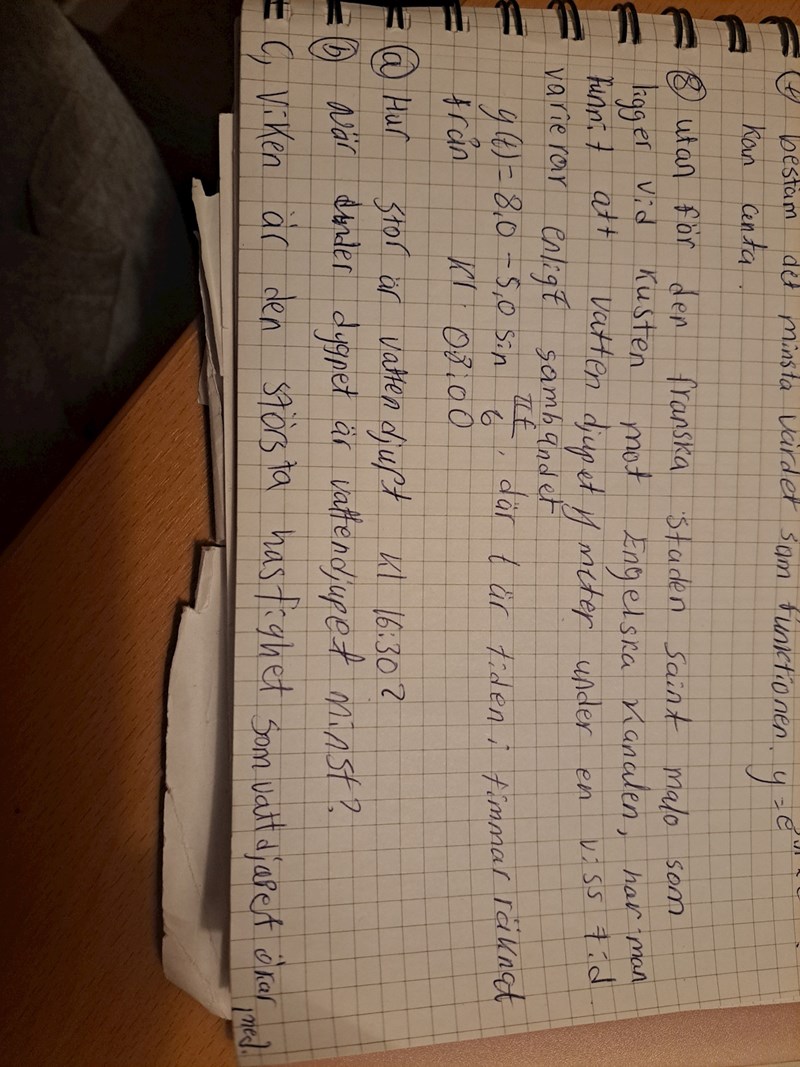 bestäm det minsta värdet som funktionen y = e
kan anta.
8 utan för den franska staden saint malo som
ligger vid kusten mot Engelska kanalen, har man
funnit att vatten djupet y meter under en viss tid
varierar enligt sambandet
y(t) = 8,0 - 5,0 sin πt/6, där t är tiden i timmar räknat
från kl. 08:00
a Hur stor är vattendjupt kl 16:30?
b När under dygnet är vattendjupet minst?
C, Vilken är den största hastighet som vattdjupet ökar med.